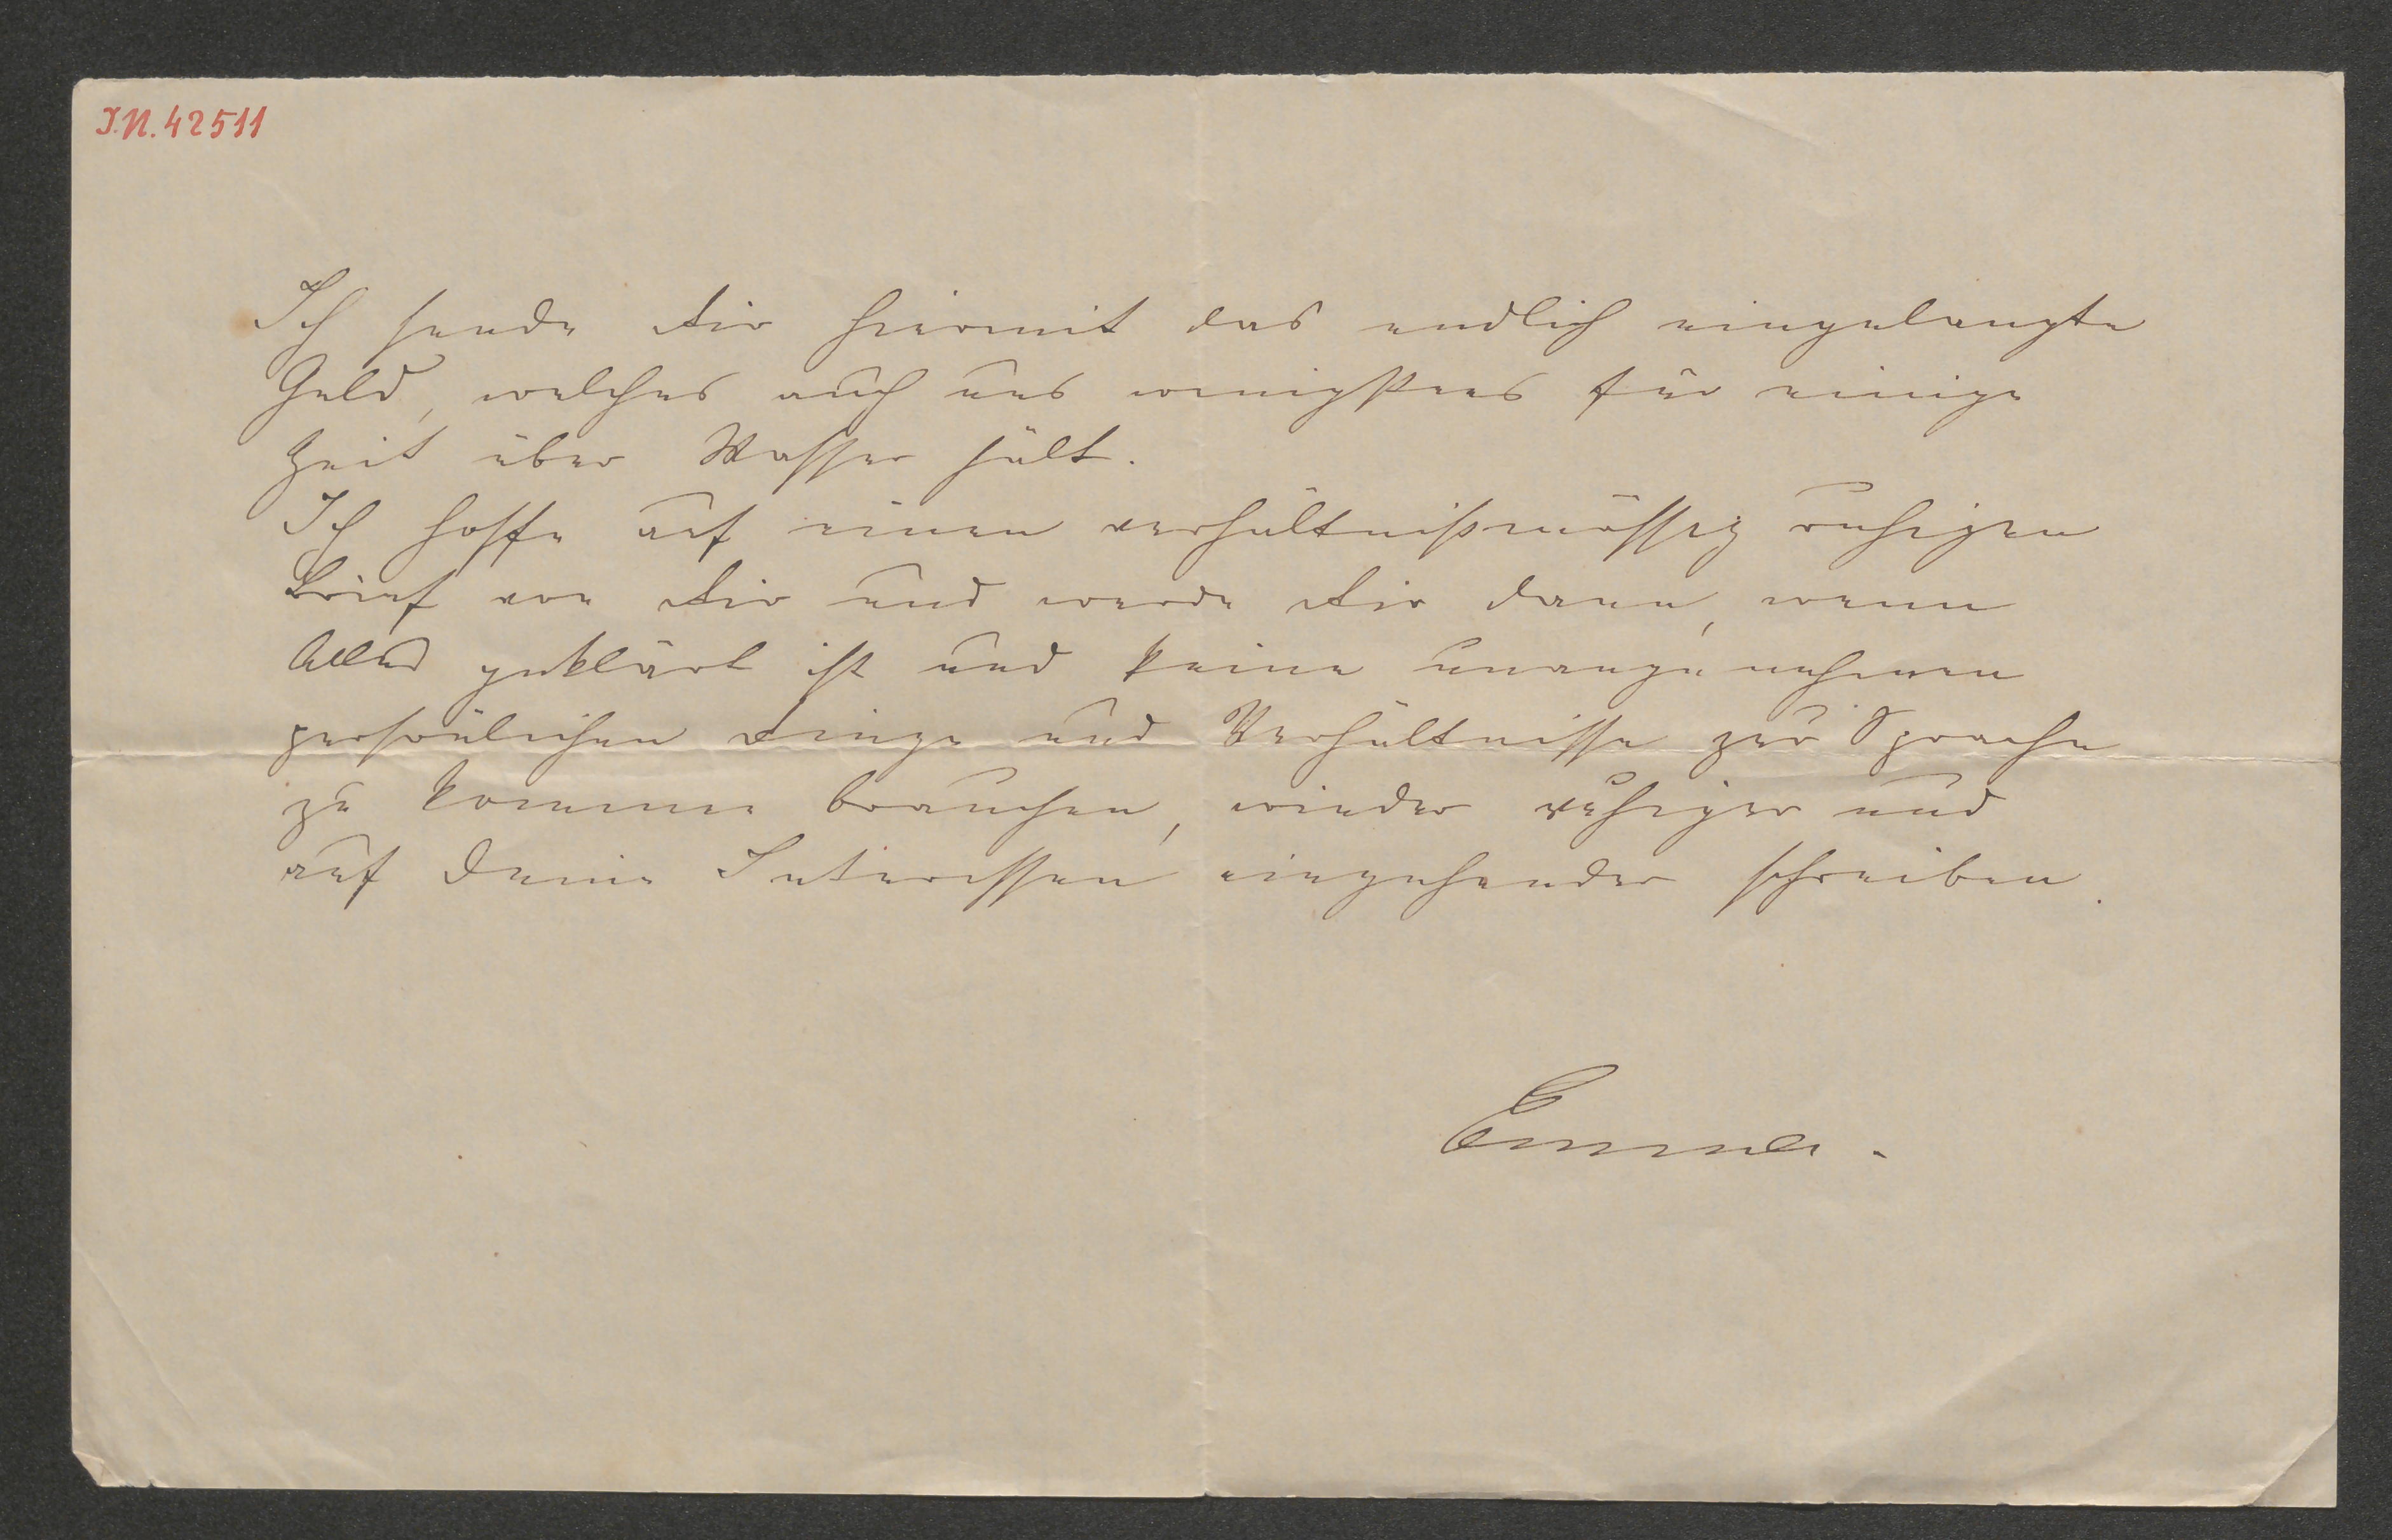 I.N. 42511
Ich sende Dir hiermit das endlich eingelangte
Geld, welches auch uns wenigstens für einige
Zeit über Wasser hält.
Ich hoffe auf einen verhältnißmässig ruhigen
Brief von Dir und werde Dir dann, wenn
Alles geklärt ist und keine unangenehmen
persönlichen Dinge und Verhältnisse zur Sprache
zu kommen brauchen, wieder ruhiger und
auf Deine Interessen eingehender schreiben.
Emma.